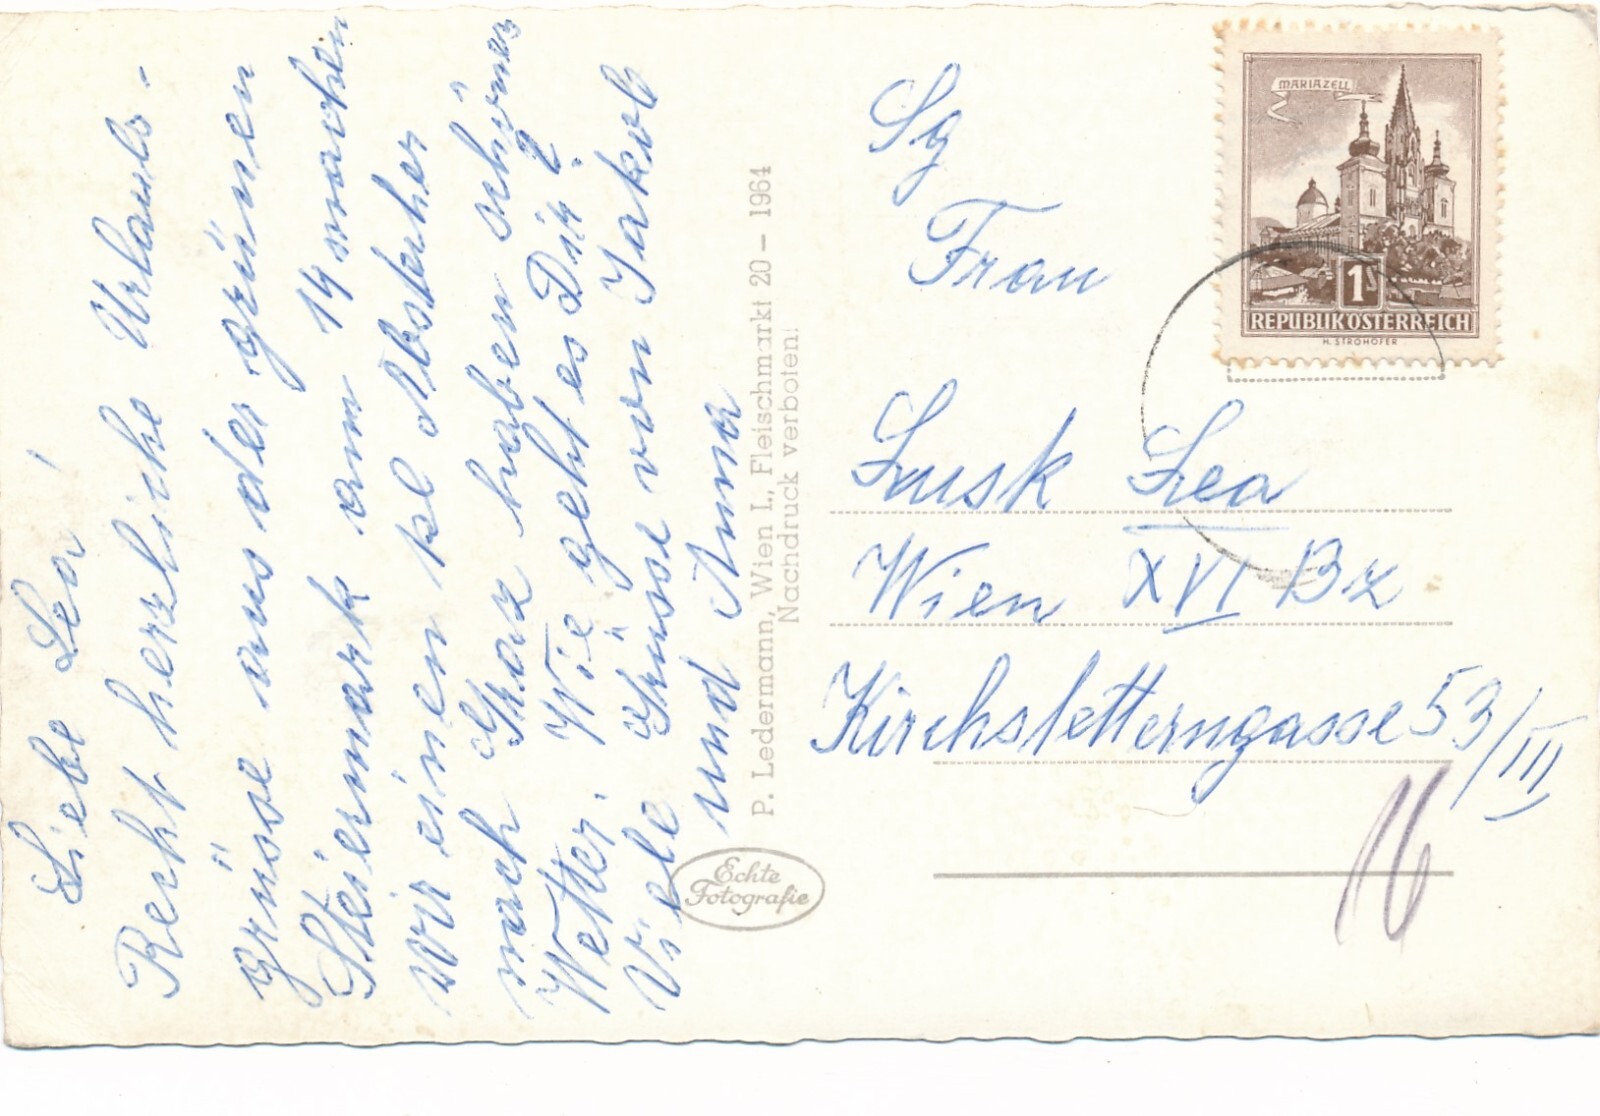 Liebe Lea!
Recht herzliche Urlaubs-
grüsse aus der grünen
Steiermark am 14 machen
wir einen kl Abstecher
nach Graz haben schönes
Wetter. Wie geht es Dir?
Viele Grüsse von Jakob
und Anna
P. Ledermann, Wien I., Fleischmarkt 20 – 1964
Nachdruck verboten!
Echte
Fotografie
MARIAZELL
1S
REPUBLIK ÖSTERREICH
H. STROHOFER
Sg
Frau
Lusk Lea
Wien XVI Bz
Kirchstetterngasse 53/III
16